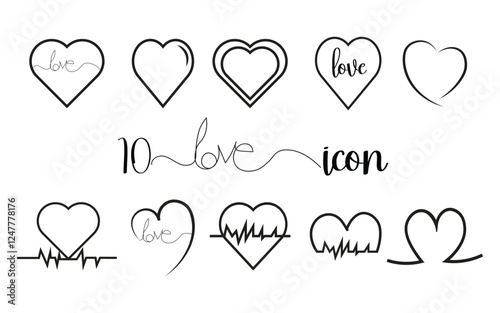 love
love
10 love icon
love
Adobe Stock | #1247778176